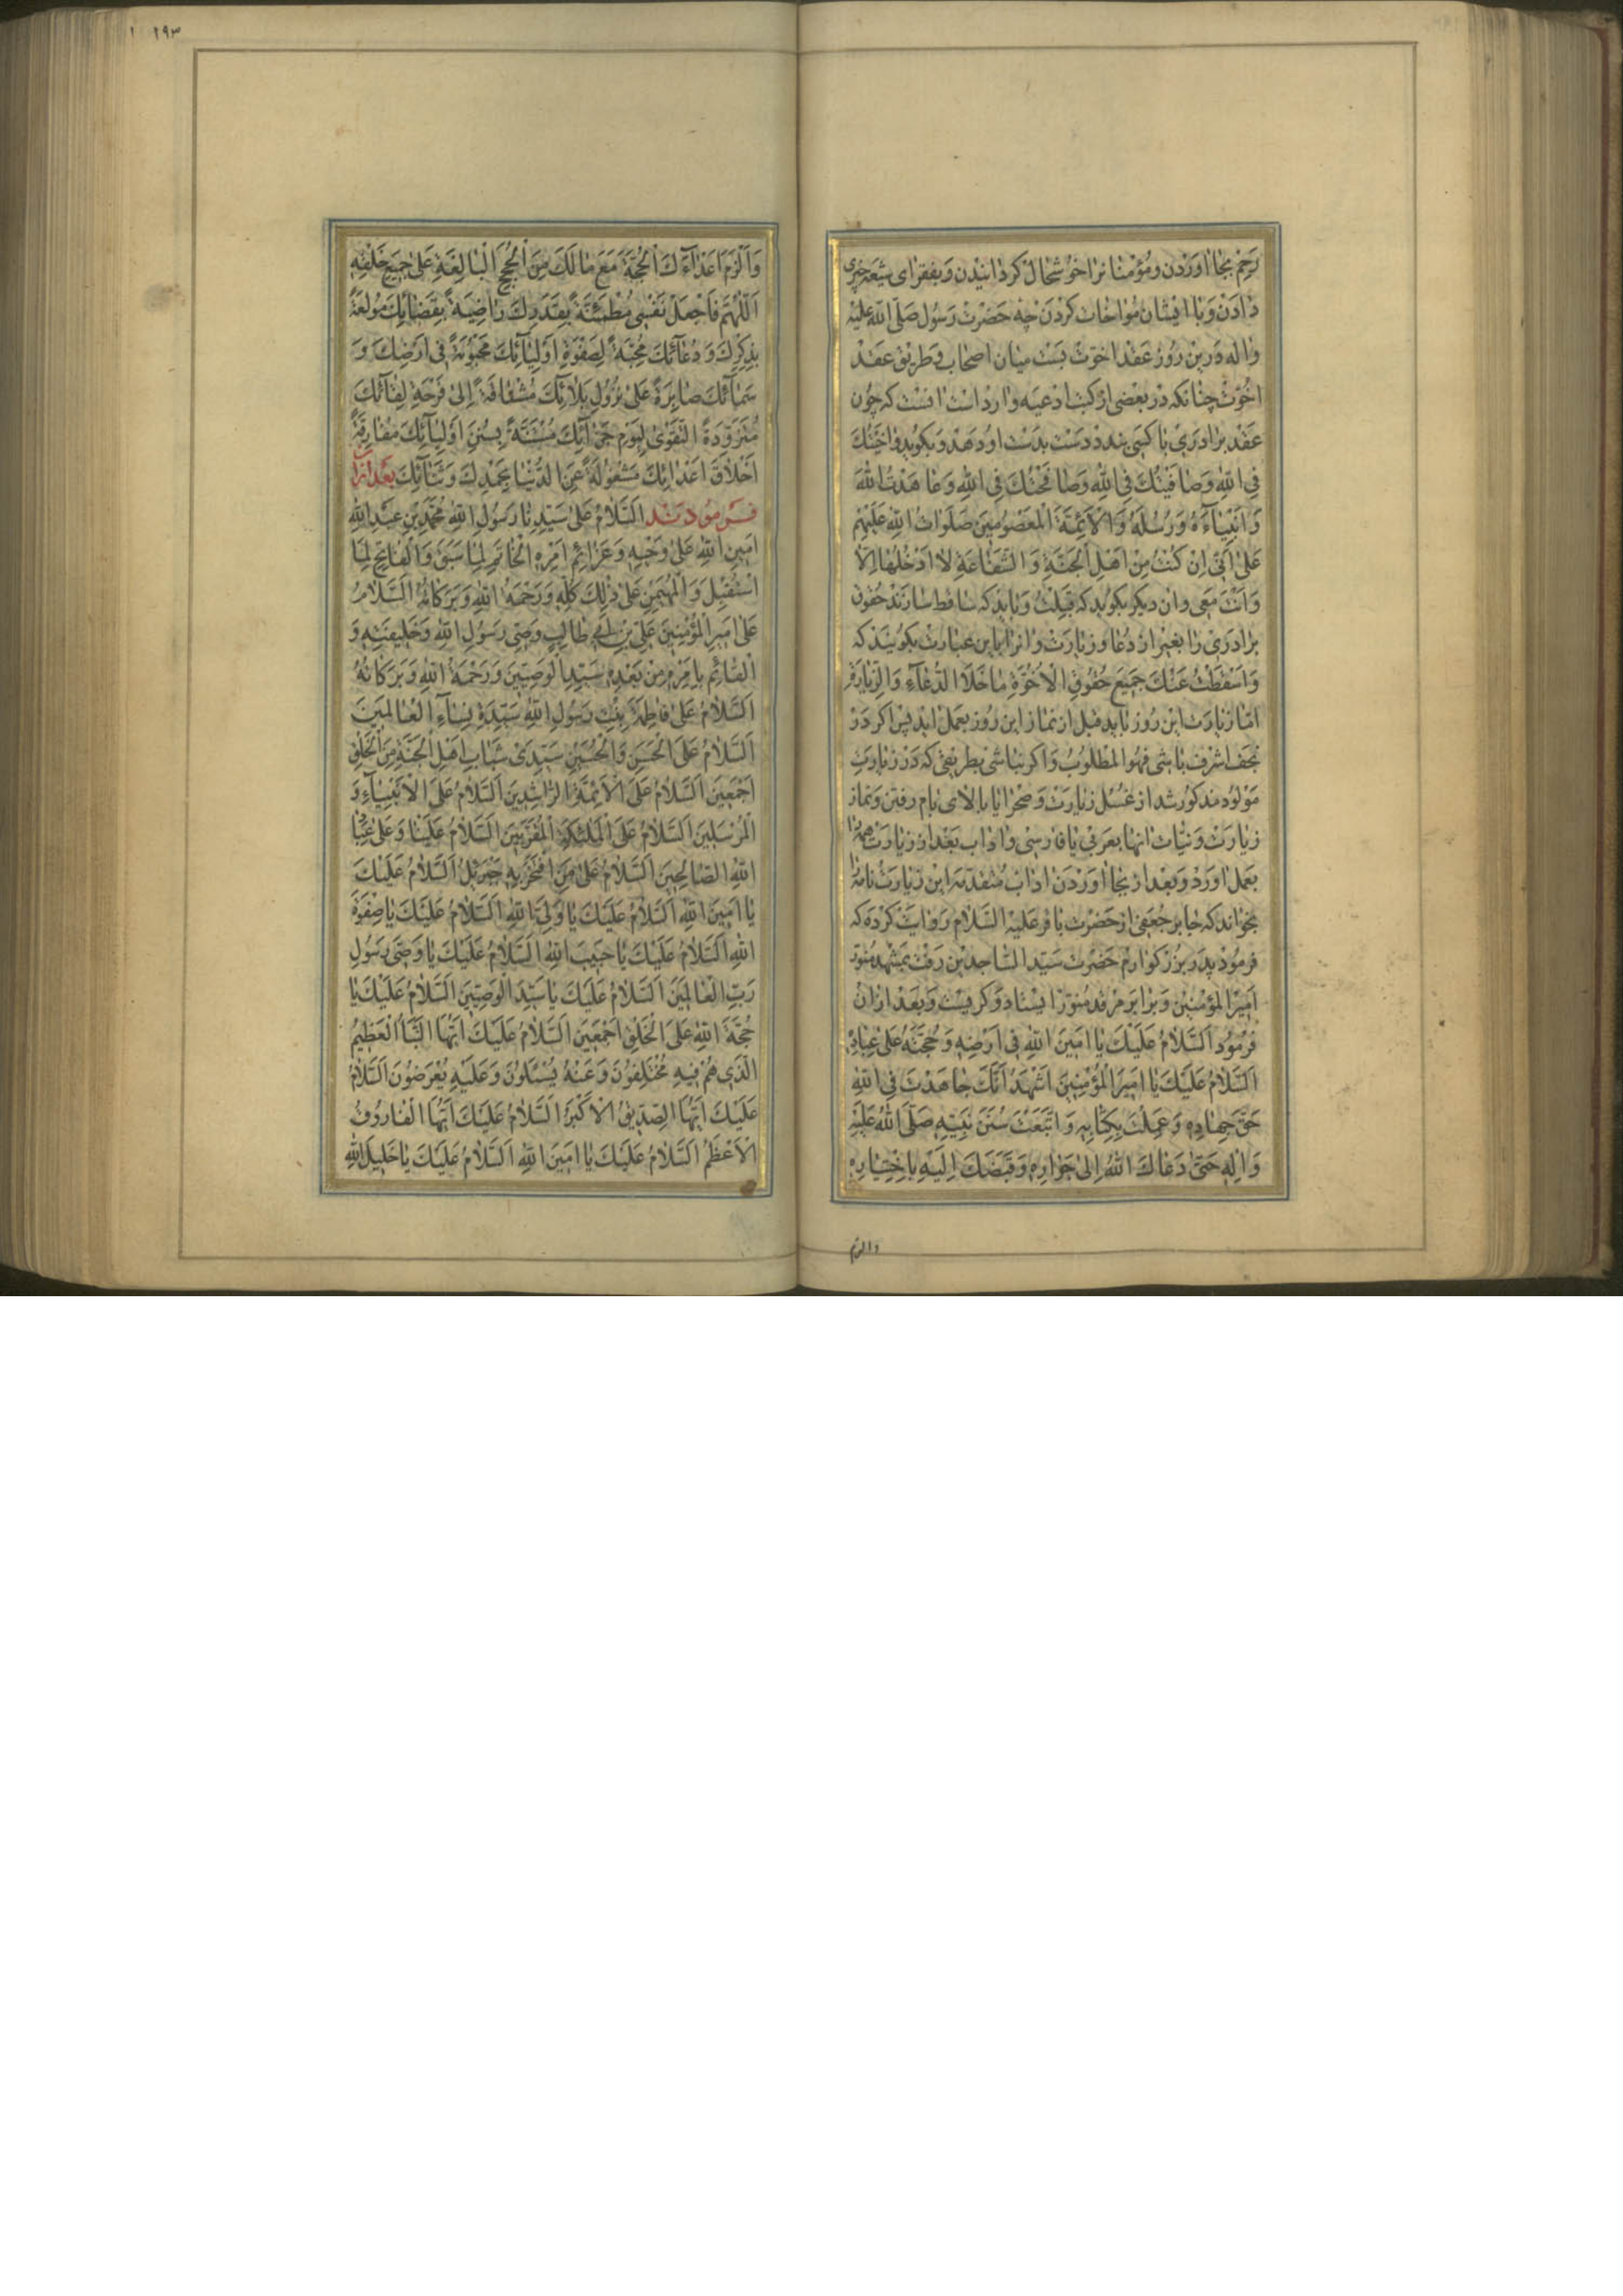 رحم بجا اوردن و مؤمنانرا خوشحال كردانيدن وبفقراى شيعه خيرى
دادن وبا ايشان مواخات كردن چه حضرت رسول صلى الله عليه
واله درين روز عقد اخوت بست ميان اصحاب وطريق عقد
اخوت چنانكه در بعضى از كتب ادعيه وارد است انست كه چون
عقد برادرى با كسى بندد دست بدست او دهد وبكويد واخيتك
فى الله وصافيتك فى الله وصافحتك فى الله وعاهدت الله
وَاَنْبِيآءَهُ وَرُسُلَهُ وَالْاَئِمَّةَ الْمَعْصُومِينَ صَلَواتُ اللهِ عَلَيْهِمْ
عَلى اَنّى اِنْ كُنْتُ مِنْ اَهْلِ الْجَنَّةِ وَالشَّفاعَةِ لا اَدْخُلُها اِلّا
وَاَنْتَ مَعى وان ديكر بكويد كه قبلت وبايد كه ساقط سازند حقوق
برادرى را بغير از دعا وزيارت وانرا باين عبارت بكويند كه
وَاَسْقَطْتُ عَنْكَ جَميعَ حُقُوقِ الْاُخُوَّةِ ما خَلَا الدُّعآءِ وَالزِّيارَةِ
اما زيارت اين روز بايد قبل از نماز اين روز بعمل ايد پس اكر در
نجف اشرف باشى فهو المطلوب واكر نباشى بطريقى كه در زيارت
مولود مذكور شد از غسل زيارت وصحرا يا بالاى بام رفتن ونماز
زيارت ونيات انها بعربى يا فارسى واداب بعد از زيارت همه را
بعمل اورد وبعد از بجا اوردن اداب متقدمه اين زيارت نامه را
بخواند كه جابر جعفى از حضرت باقر عليه السلام روايت كرده كه
فرمود پدر بزركوارم حضرت سيد الساجدين رفت بمشهد منور
امير المؤمنين وبرابر مرقد منور ايستاد وكريست وبعد ازان
فرمود اَلسَّلامُ عَلَيْكَ يا اَمينَ اللهِ فى اَرْضِهِ وَحُجَّتَهُ عَلى عِبادِهِ
اَلسَّلامُ عَلَيْكَ يا اَميرَ الْمُؤْمِنينَ اَشْهَدُ اَنَّكَ جاهَدْتَ فِى اللهِ
حَقَّ جِهادِهِ وَعَمِلْتَ بِكِتابِهِ وَاتَّبَعْتَ سُنَنَ نَبِيِّهِ صَلَّى اللهُ عَلَيْهِ
وَالِهِ حَتّى دَعاكَ اللهُ اِلى جَوارِهِ وَقَبَضَكَ اِلَيْهِ بِاخْتِيارِهِ
والزم
١٩٣
وَاَلْزَمَ اَعْدآءَكَ الْحُجَّةَ مَعَ ما لَكَ مِنَ الْحُجَجِ الْبالِغَةِ عَلى جَميعِ خَلْقِهِ
اَللّهُمَّ فَاجْعَلْ نَفْسى مُطْمَئِنَّةً بِقَدَرِكَ راضِيَةً بِقَضآئِكَ مُولَعَةً
بِذِكْرِكَ وَدُعآئِكَ مُحِبَّةً لِصَفْوَةِ اَوْلِيآئِكَ مَحْبُوبَةً فى اَرْضِكَ وَ
سَمآئِكَ صابِرَةً عَلى نُزُولِ بَلائِكَ مُشْتاقَةً اِلى فَرْحَةِ لِقآئِكَ
مُتَزَوِّدَةً التَّقْوى لِيَوْمِ جَزآئِكَ مُسْتَنَّةً بِسُنَنِ اَوْلِيآئِكَ مُفارِقَةً
اَخْلاقَ اَعْدائِكَ مَشْغُولَةً عَنِ الدُّنْيا بِحَمْدِكَ وَثَنآئِكَ بعد ازان
فرمودند اَلسَّلامُ عَلى سَيِّدِنا رَسُولِ اللهِ مُحَمَّدِ بْنِ عَبْدِ اللهِ
اَمينِ اللهِ عَلى وَحْيِهِ وَعَزائِمِ اَمْرِهِ الْخاتِمِ لِما سَبَقَ وَالْفاتِحِ لِمَا
اسْتُقْبِلَ وَالْمُهَيْمِنِ عَلى ذلِكَ كُلِّهِ وَرَحْمَةُ اللهِ وَبَرَكاتُهُ اَلسَّلامُ
عَلى اَميرِ الْمُؤْمِنينَ عَلِىِّ بْنِ اَبى طالِبٍ وَصِىِّ رَسُولِ اللهِ وَخَليفَتِهِ وَ
الْقائِمِ بِاَمْرِهِ مِنْ بَعْدِهِ سَيِّدِ الْوَصِيّينَ وَرَحْمَةُ اللهِ وَبَرَكاتُهُ
اَلسَّلامُ عَلى فاطِمَةَ بِنْتِ رَسُولِ اللهِ سَيِّدَةِ نِسآءِ الْعالَمينَ
اَلسَّلامُ عَلَى الْحَسَنِ وَالْحُسَيْنِ سَيِّدَىْ شَبابِ اَهْلِ الْجَنَّةِ مِنَ الْخَلْقِ
اَجْمَعينَ اَلسَّلامُ عَلَى الْاَئِمَّةِ الرّاشِدينَ اَلسَّلامُ عَلَى الْاَنْبِيآءِ وَ
الْمُرْسَلينَ اَلسَّلامُ عَلَى الْمَلئِكَةِ الْمُقَرَّبينَ اَلسَّلامُ عَلَيْنا وَعَلى عِبادِ
اللهِ الصّالِحينَ اَلسَّلامُ عَلى مَنِ افْتَخَرَ بِهِ جَبْرَئيلُ اَلسَّلامُ عَلَيْكَ
يا اَمينَ اللهِ اَلسَّلامُ عَلَيْكَ يا وَلِىَّ اللهِ اَلسَّلامُ عَلَيْكَ يا صِفْوَةَ
اللهِ اَلسَّلامُ عَلَيْكَ يا حَبيبَ اللهِ اَلسَّلامُ عَلَيْكَ يا وَصِىَّ رَسُولِ
رَبِّ الْعالَمينَ اَلسَّلامُ عَلَيْكَ يا سَيِّدَ الْوَصِيّينَ اَلسَّلامُ عَلَيْكَ يا
حُجَّةَ اللهِ عَلَى الْخَلْقِ اَجْمَعينَ اَلسَّلامُ عَلَيْكَ اَيُّهَا النَّبَاُ الْعَظيمُ
الَّذى هُمْ فيهِ مُخْتَلِفُونَ وَعَنْهُ يُسْئَلُونَ وَعَلَيْهِ يُعْرَضُونَ اَلسَّلامُ
عَلَيْكَ اَيُّهَا الصِّدّيقُ الْاَكْبَرُ اَلسَّلامُ عَلَيْكَ اَيُّهَا الْفارُوقُ
الْاَعْظَمُ اَلسَّلامُ عَلَيْكَ يا اَمينَ اللهِ اَلسَّلامُ عَلَيْكَ يا خَليلَ اللهِ